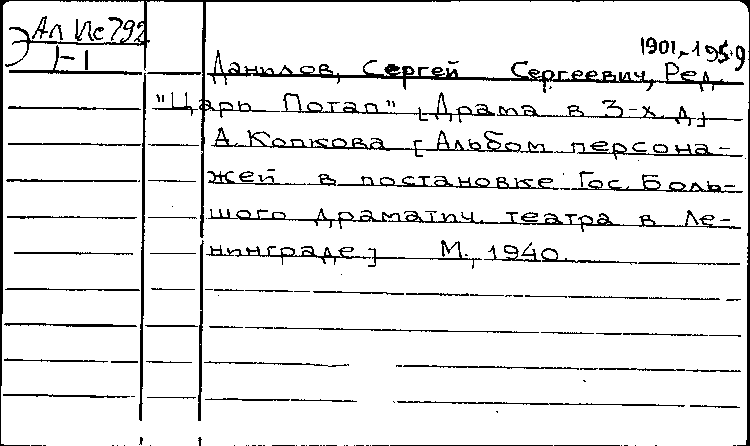 Ал Ис792
Э 1-1
1901-1959
Данилов, Сергей Сергеевич, Ред.
"Царь Потап" [Драма в 3-х д.]
А. Копкова [Альбом персона-
жей в постановке Гос. Боль-
шого драматич. театра в Ле-
нинграде] М., 1940.